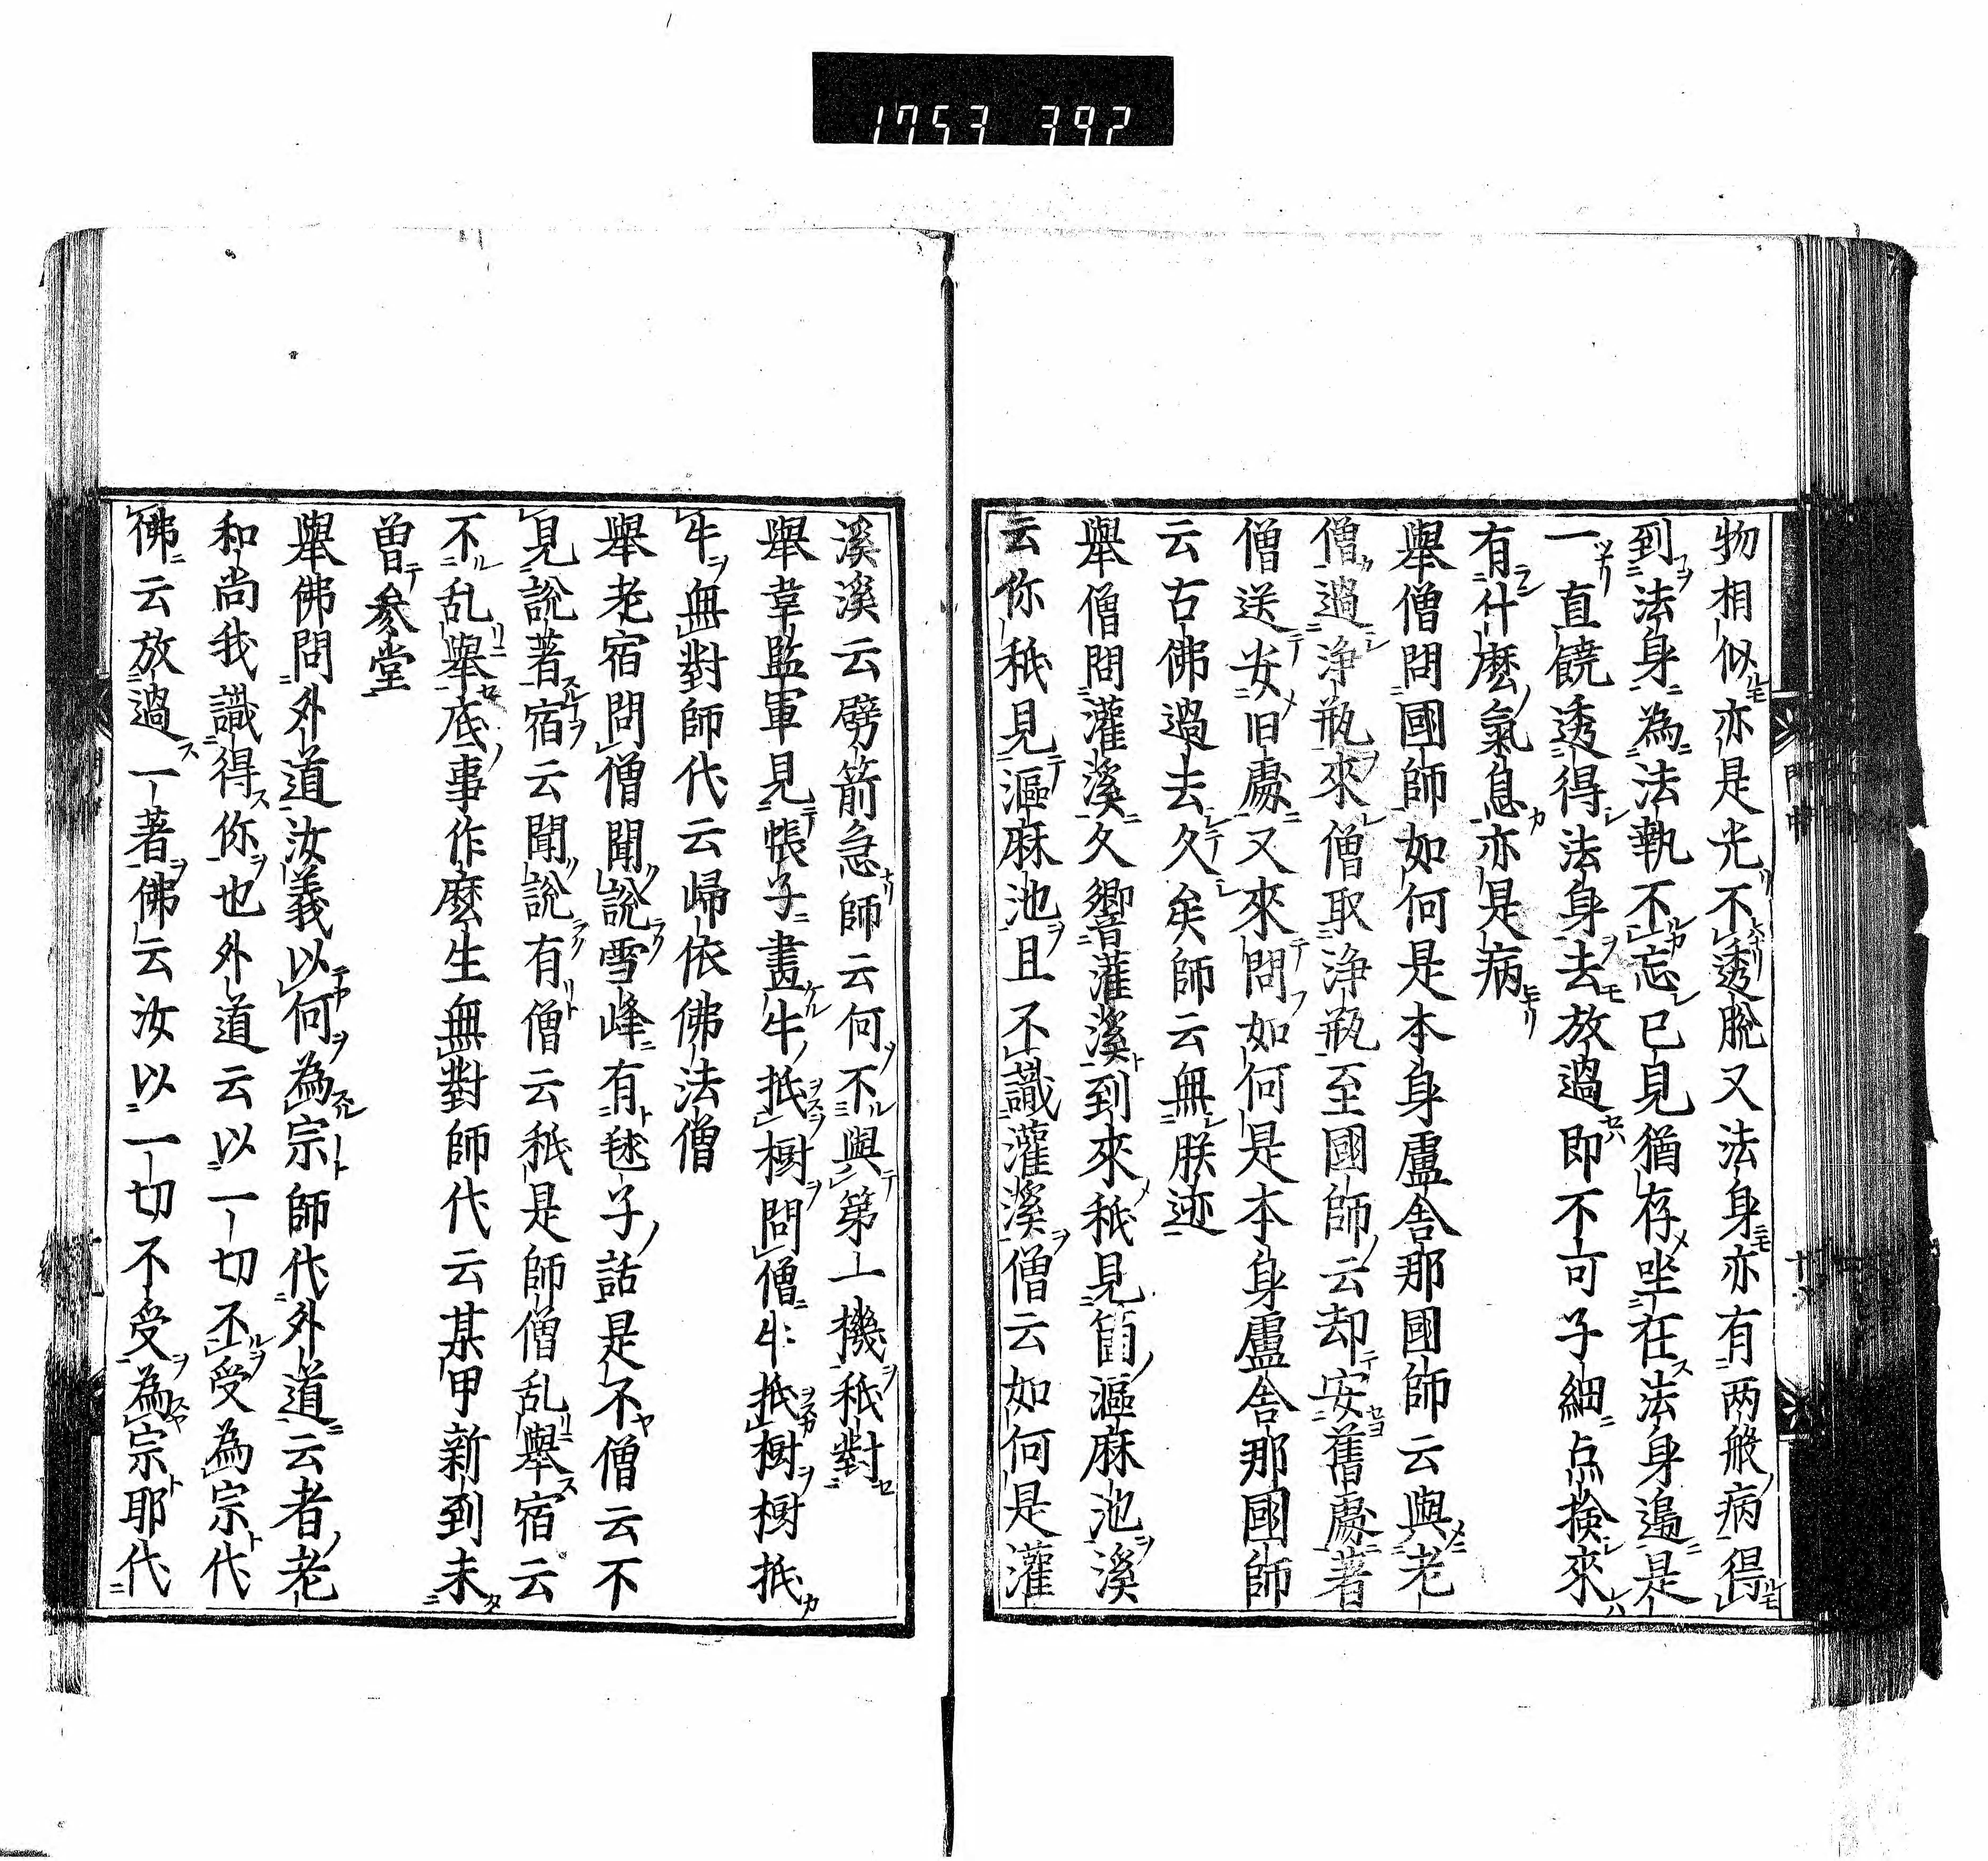 1753 392
物相似亦是光不透脫又法身亦有两般病得
到法身為法執不忘已見猶存坐在法身邉是
一直饒透得法身去放過即不可子細点撿來
有什麽氣息亦是病
舉僧問國師如何是本身盧舍那國師云與老
僧過浄瓶來僧取浄瓶至國師云却安舊處著
僧送安旧處又來問如何是本身盧舍那國師
云古佛過去久矣師云無朕迹
舉僧問灌溪久響灌溪到來秖見箇漚麻池溪
云你秖見漚麻池且不識灌溪僧云如何是灌
溪溪云劈箭急師云何不與第一機秖對
舉韋監軍見帳子畫牛抵樹問僧牛抵樹樹抵
牛無對師代云歸依佛法僧
舉老宿問僧聞說雪峰有毬子話是不僧云不
見說著宿云聞說有僧云秖是師僧乱舉宿云
不乱舉底事作麽生無對師代云某甲新到未
曽叅堂
舉佛問外道汝義以何為宗師代外道云者老
和尚我識得你也外道云以一切不受為宗代
佛云放過一著佛云汝以一切不受為宗耶代